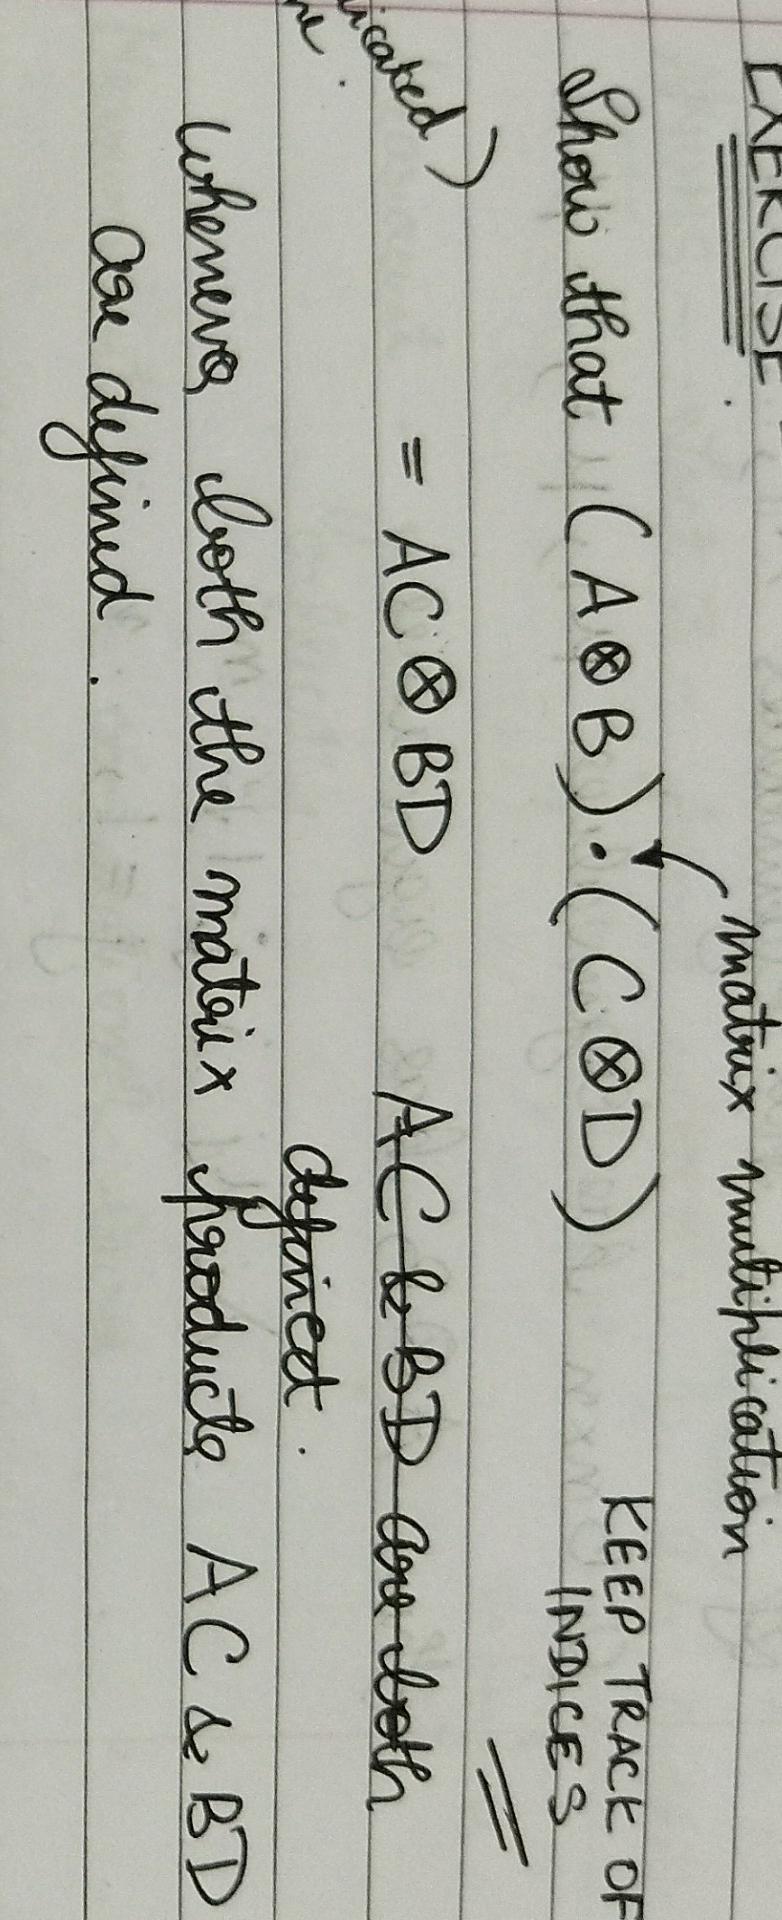 EXERCISE
matrix multiplication
Show that (A⊗B)·(C⊗D)
KEEP TRACK OF
INDICES
= AC⊗BD
AC & BD are both
defined.
whenever both the matrix products AC & BD
are defined.